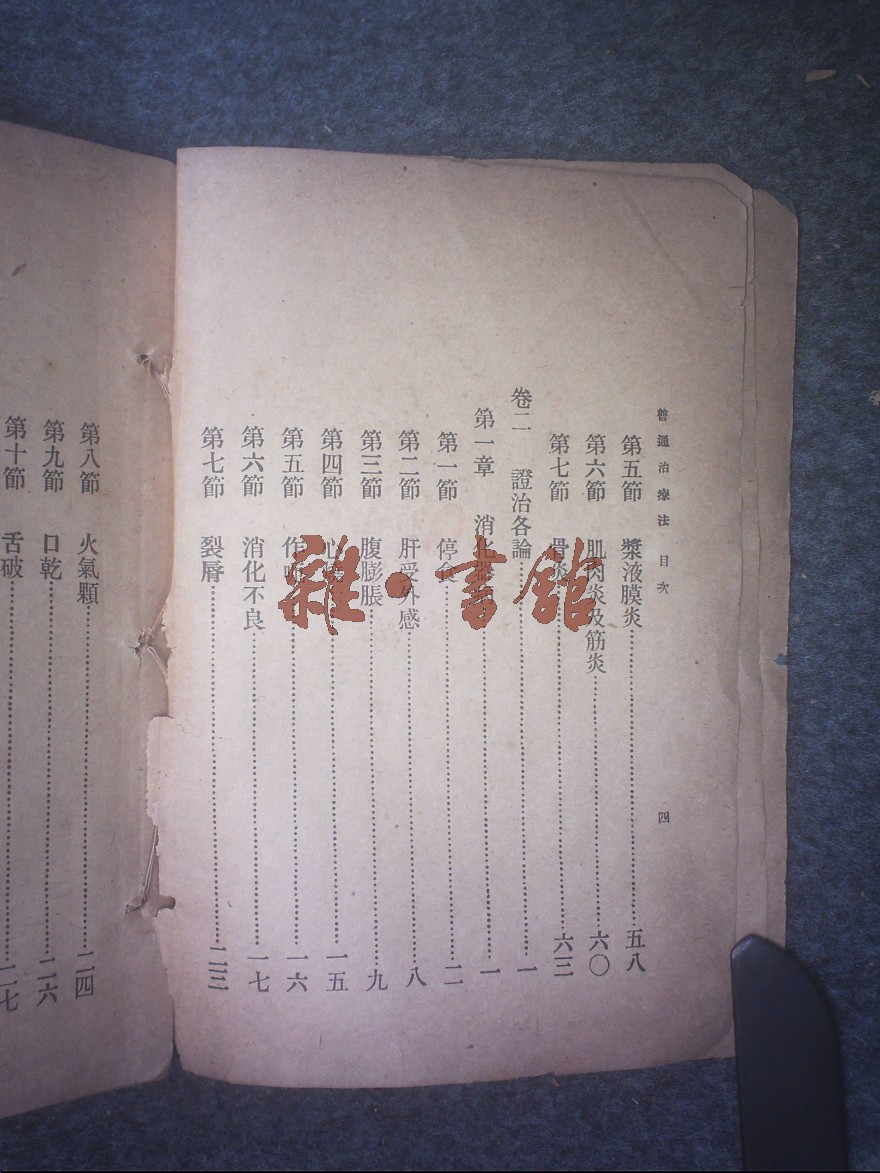 普通治療法 目次 四
第五節 漿液膜炎 五八
第六節 肌肉炎及筋炎 六〇
第七節 骨炎 六三
卷二 證治各論 一
第一章 消化器 一
第一節 停食 二
第二節 肝受外感 八
第三節 腹膨脹 九
第四節 心 一五
第五節 作 一六
第六節 消化不良 一七
第七節 裂脣 二三
第八節 火氣顆 二四
第九節 口乾 二六
第十節 舌破 二七
雜·書館